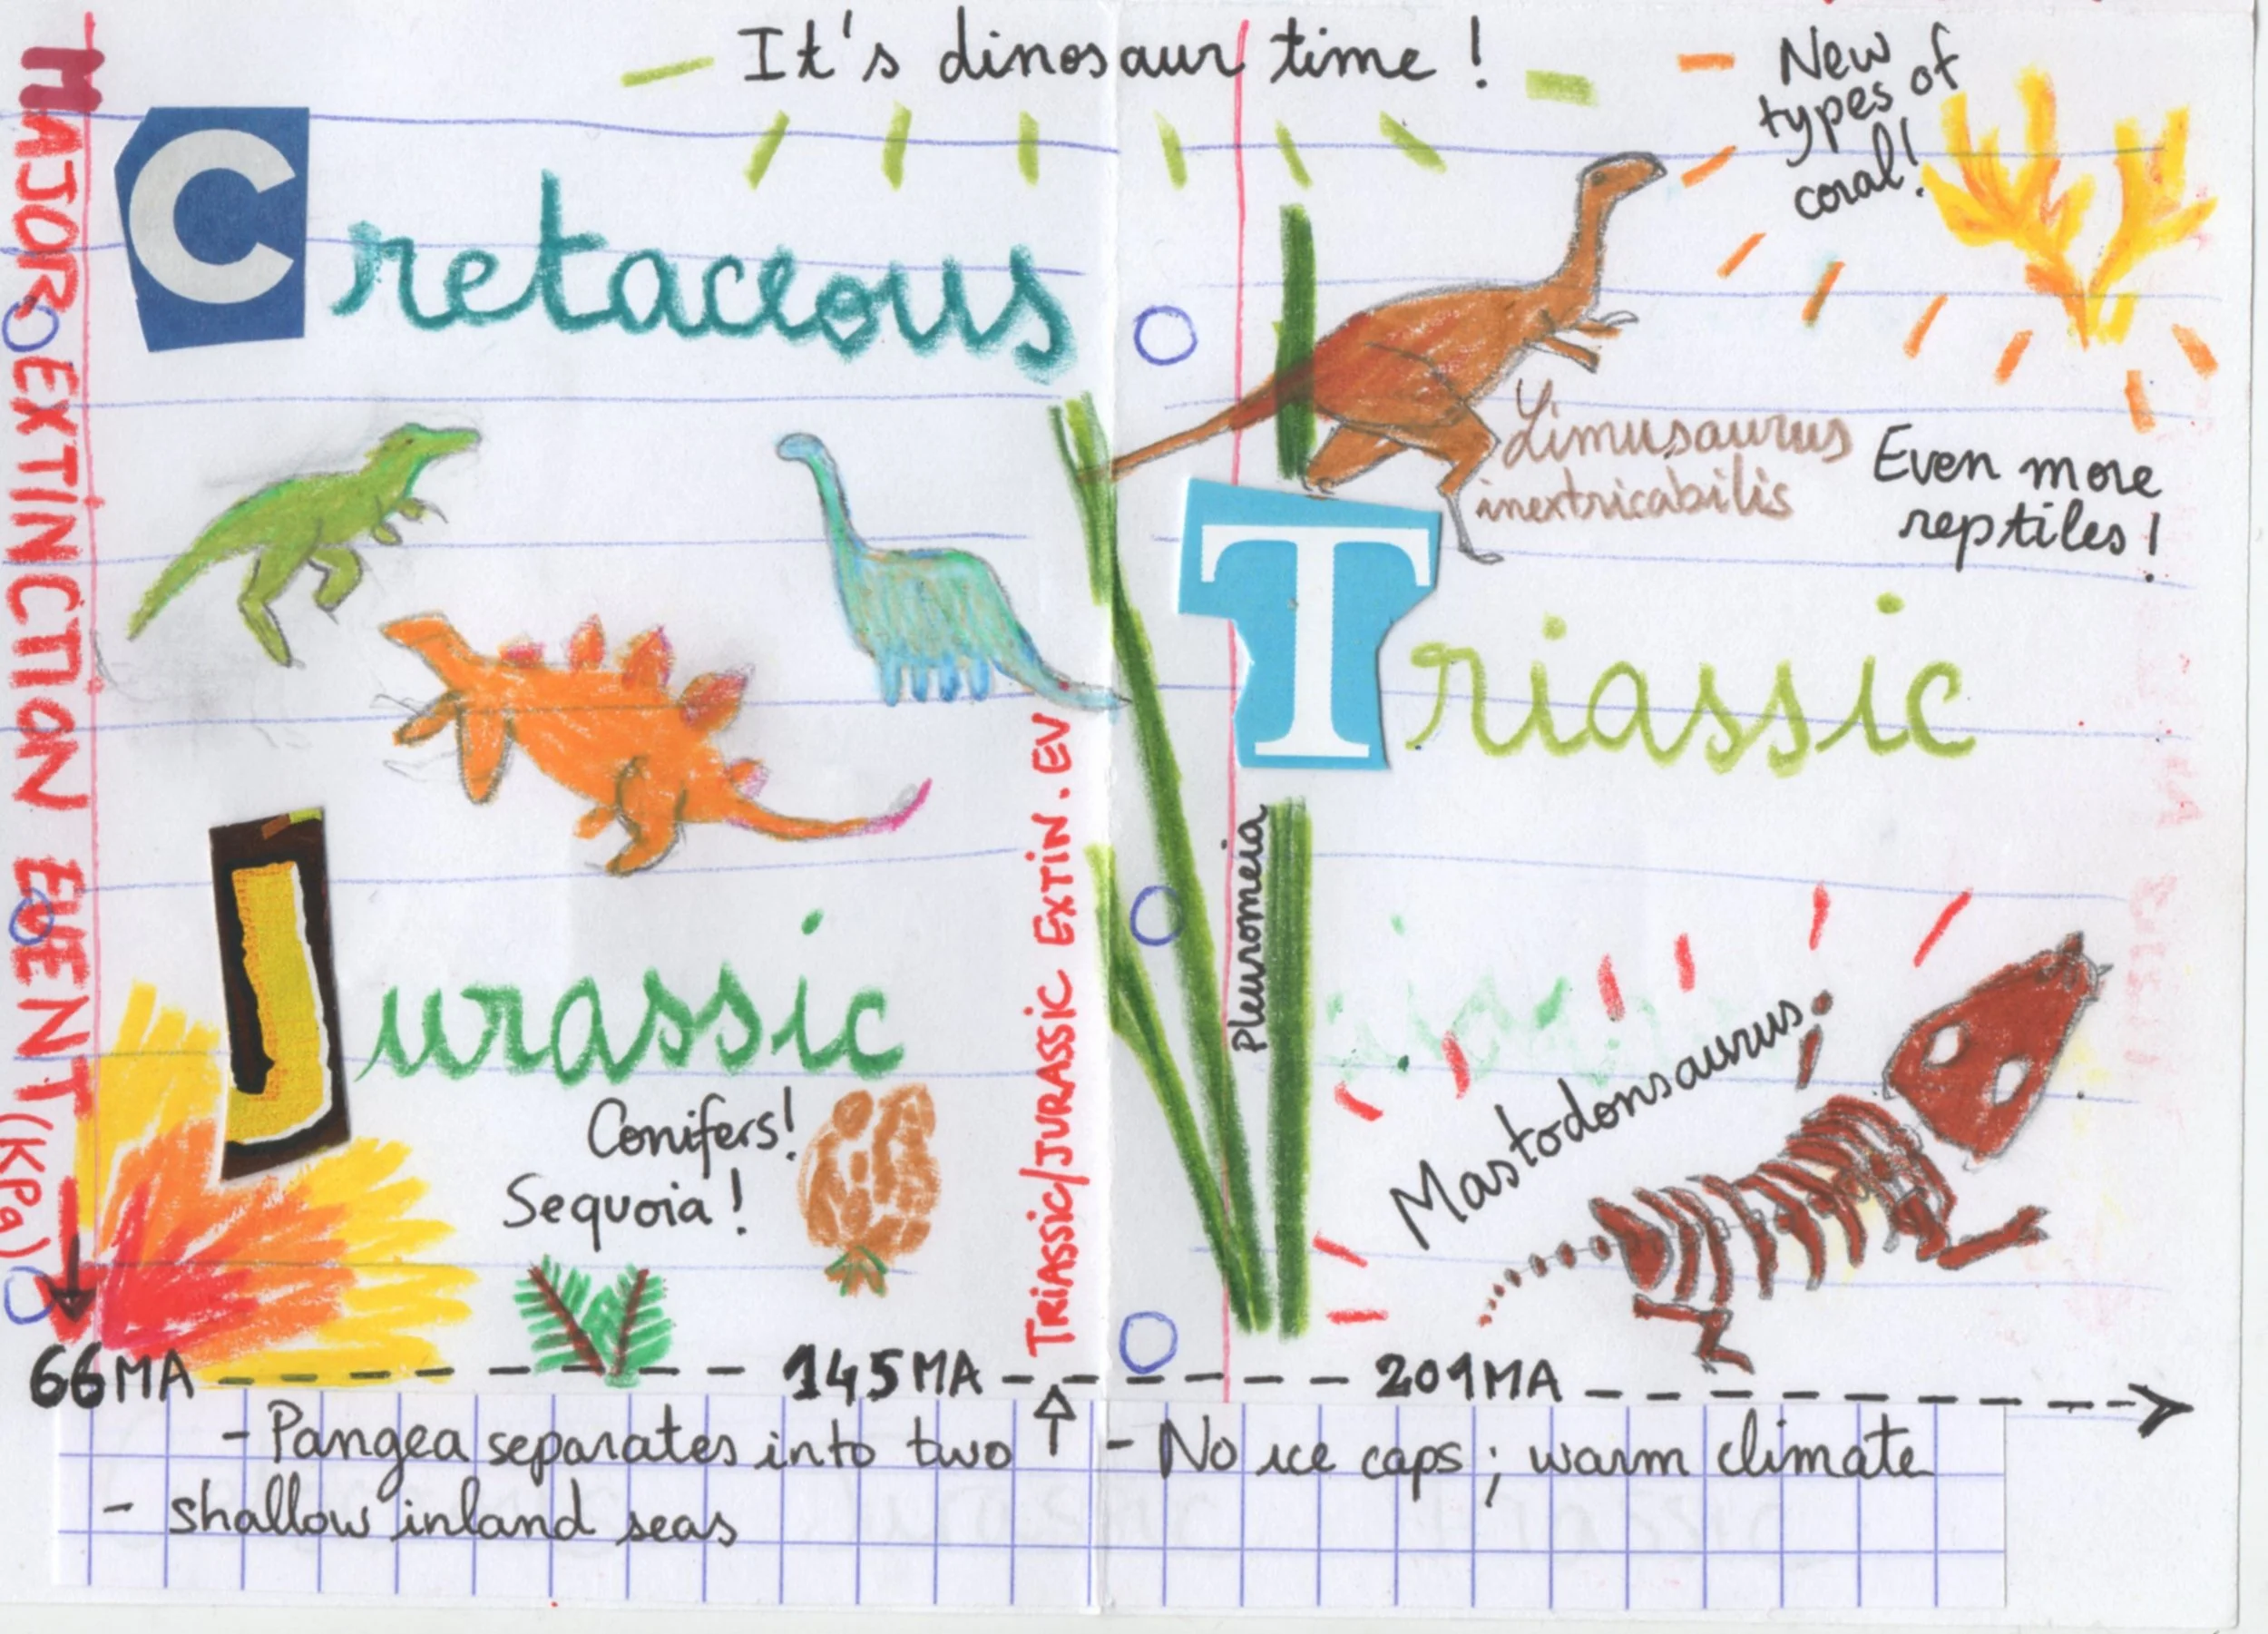 It's dinosaur time !
New
types of
coral!
MAJOR EXTINCTION EVENT (KPg)
Cretaceous
Limusaurus
inextricabilis
Even more
reptiles !
Triassic
Jurassic
Conifers!
Sequoia !
TRIASSIC/JURASSIC EXTIN. EV
Pleuromeia
Mastodonsaurus
66 MA
145 MA
201 MA
- Pangea separates into two
- shallow inland seas
- No ice caps ; warm climate